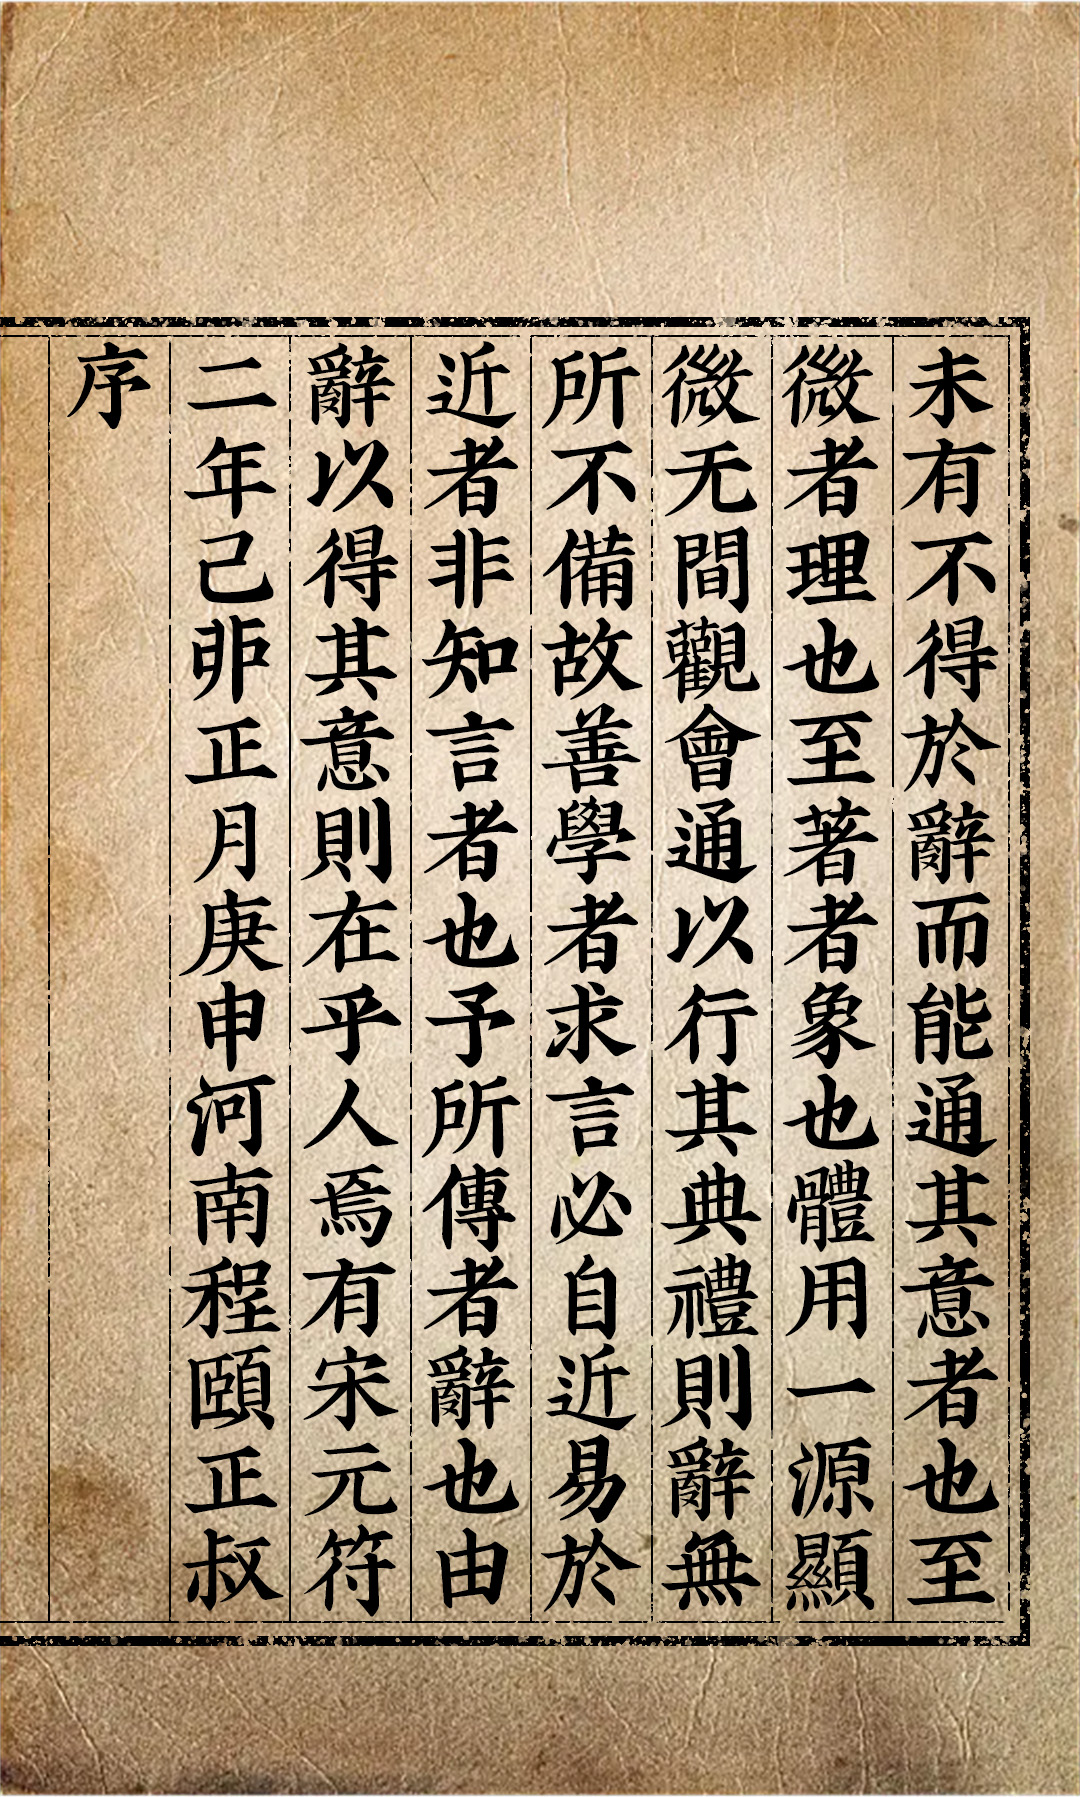 未有不得於辭而能通其意者也至
微者理也至著者象也體用一源顯
微无間觀會通以行其典禮則辭無
所不備故善學者求言必自近易於
近者非知言者也予所傳者辭也由
辭以得其意則在乎人焉有宋元符
二年己丣正月庚申河南程頤正叔
序